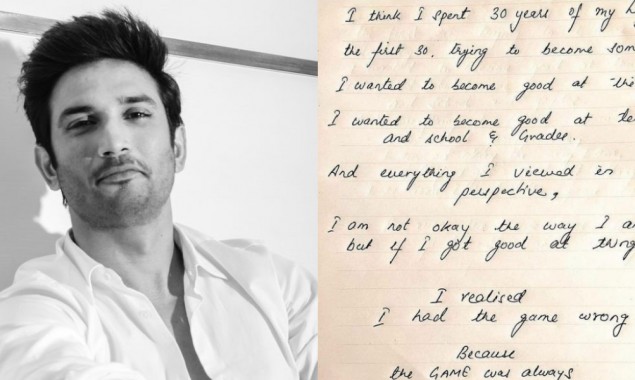 I think I spent 30 years of my
the first 30, trying to become
I wanted to become good at
I wanted to become good at
and school & Grades.
And everything I viewed in
perspective,
I am not okay the way I
but if I got good at
I realised
I had the game wrong
Because
the GAME was always